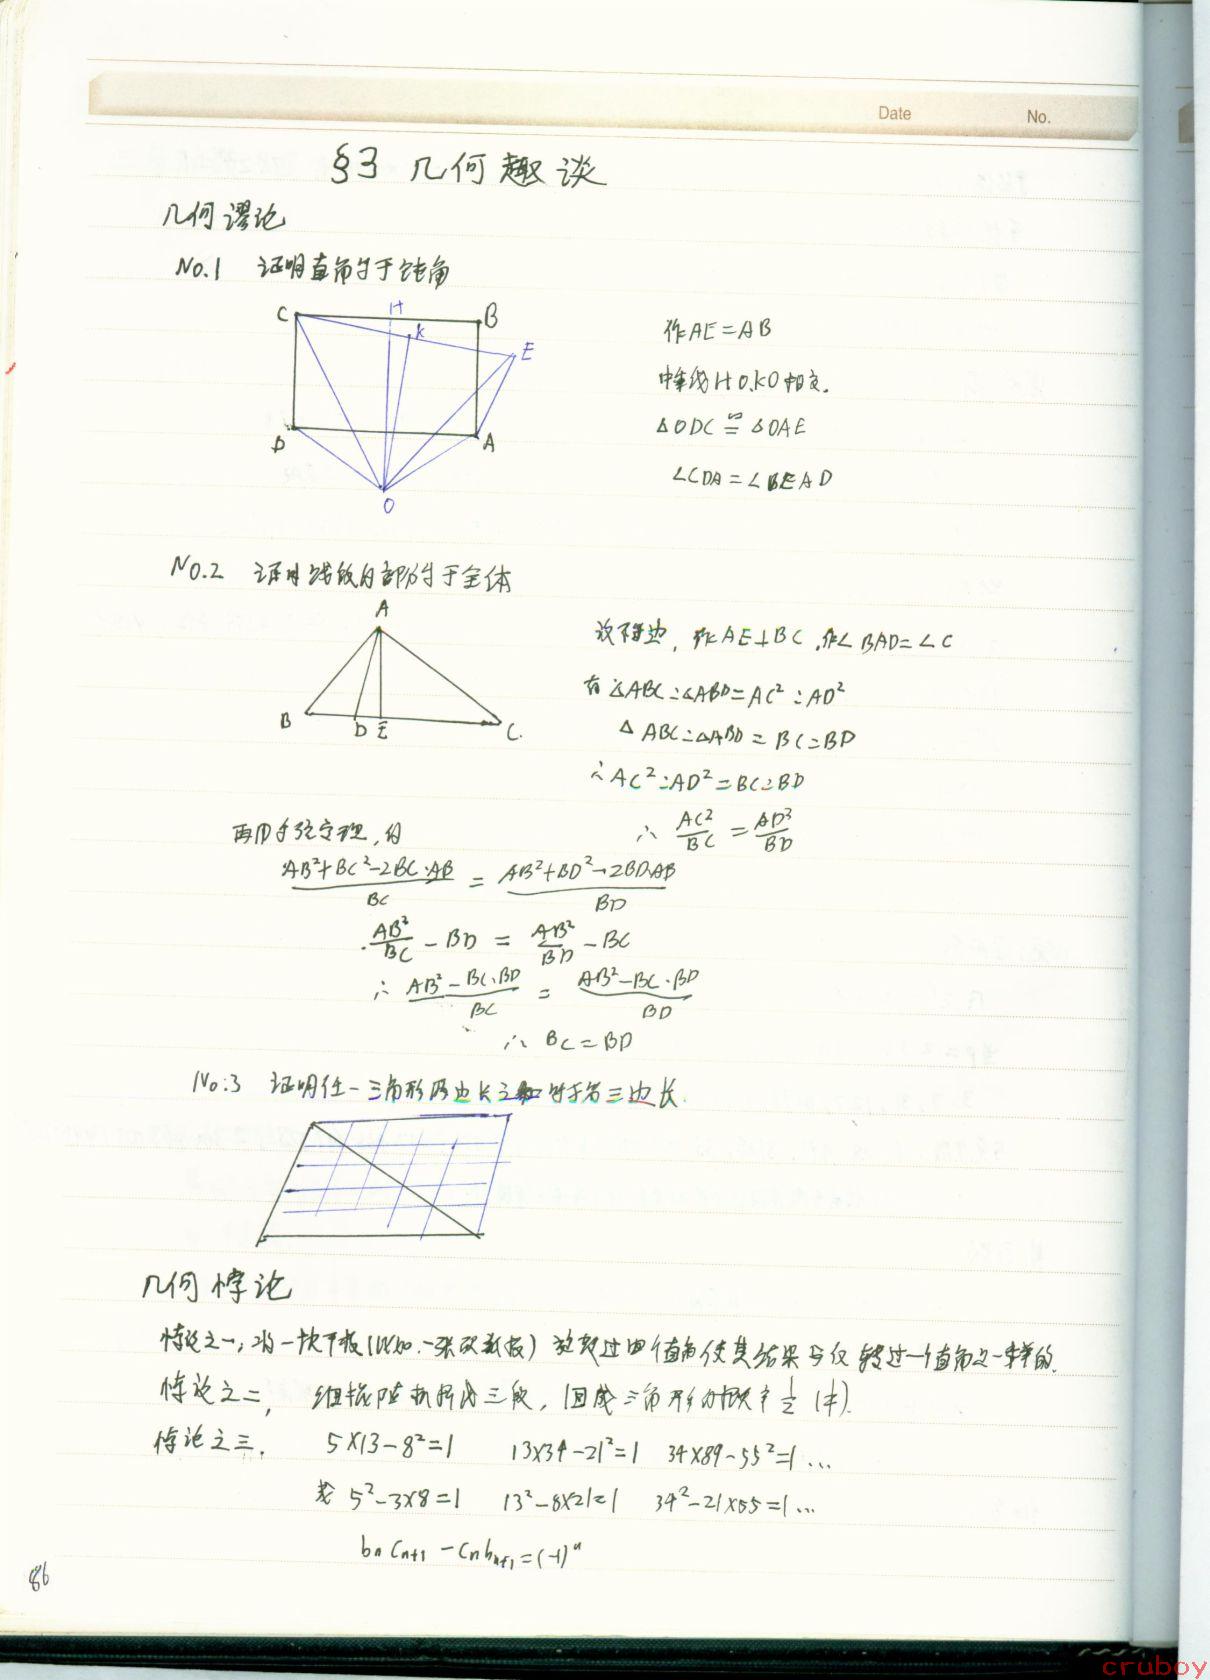 Date No.
§3 几何趣谈
几何谬论
No.1 证明直角等于钝角
C H B
K
E
D A
O
作AE=AB
中垂线HO,KO相交.
△ODC≌△OAE
∠CDA=∠EAD
No.2 证明线段的部分等于全体
A
B D E C.
设不等边, 作AE⊥BC,作∠BAD=∠C
有△ABC:△ABD=AC²:AD²
△ABC:△ABD=BC:BD
∴AC²:AD²=BC:BD
∴ AC²/BC = AD²/BD
再用余弦定理,有
(AB²+BC²-2BC·AB)/BC = (AB²+BD²-2BD·AB)/BD
AB²/BC - BD = AB²/BD - BC
∴ (AB²-BC·BD)/BC = (AB²-BC·BD)/BD
∴ BC=BD
No.3 证明任一三角形两边长之和等于第三边长.
几何悖论
悖论之一, 将一块平板(比如一张硬纸板) 旋转过四个直角使其结果与仅转过一个直角是一样的.
悖论之二, 细棍随机折成三段, 围成三角形的概率 1/2 (1/4).
悖论之三. 5×13-8²=1 13×34-21²=1 34×89-55²=1 ...
5²-3×8=1 13²-8×21=1 34²-21×55=1 ...
bₙCₙ₊₁-Cₙbₙ₊₁=(-1)ⁿ
86
cruboy